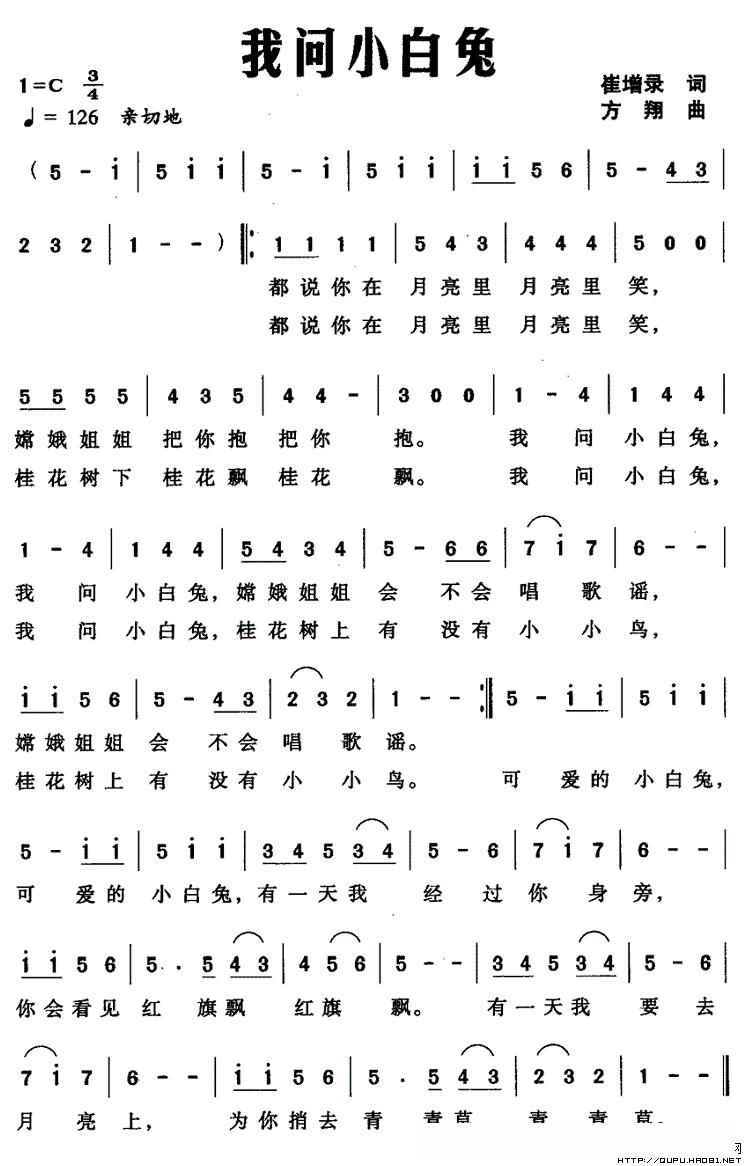 我问小白兔
1=C 3/4 崔增录 词
♩= 126 亲切地 方翔 曲
( 5 - i | 5 i i | 5 - i | 5 i i | i i 5 6 | 5 - 4 3 |
2 3 2 | 1 - - ) ‖: 1 1 1 1 | 5 4 3 | 4 4 4 | 5 0 0 |
都说你在 月亮里 月亮里 笑,
都说你在 月亮里 月亮里 笑,
5 5 5 5 | 4 3 5 | 4 4 - | 3 0 0 | 1 - 4 | 1 4 4 |
嫦娥姐姐 把你抱 把你 抱。 我 问 小白兔,
桂花树下 桂花飘 桂花 飘。 我 问 小白兔,
1 - 4 | 1 4 4 | 5 4 3 4 | 5 - 6 6 | 7 i 7 | 6 - - |
我 问 小白兔, 嫦娥姐姐 会 不会 唱 歌 谣,
我 问 小白兔, 桂花树上 有 没有 小 小 鸟,
i i 5 6 | 5 - 4 3 | 2 3 2 | 1 - - :‖ 5 - i i | 5 i i |
嫦娥姐姐 会 不会 唱 歌 谣。
桂花树上 有 没有 小 小 鸟。 可 爱的 小白兔,
5 - i i | 5 i i | 3 4 5 3 4 | 5 - 6 | 7 i 7 | 6 - - |
可 爱的 小白兔, 有一天我 经 过 你 身 旁,
i i 5 6 | 5 . 5 4 3 | 4 5 6 | 5 - - | 3 4 5 3 4 | 5 - 6 |
你会看见 红 旗飘 红旗 飘。 有一天我 要 去
7 i 7 | 6 - - | i i 5 6 | 5 . 5 4 3 | 2 3 2 | 1 - - ‖
月 亮 上, 为你捎去 青 青草 青 青 草。
网
HTTP://QUPU.HAO81.NET